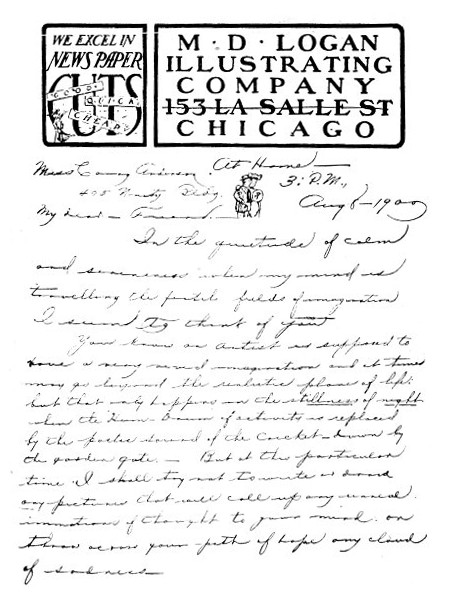 WE EXCEL IN
NEWS PAPER
CUTS
GOOD
QUICK
CHEAP
M · D · LOGAN
ILLUSTRATING
COMPANY
153 LA SALLE ST
CHICAGO
At Home
Miss
3: P.M.,
405 Bldg.
Aug 8-1900
My dear Friend
In the quietude of calm
and sereneness when my mind is
travelling the fertile fields of imagination
I seem to think of you
You know an artist is supposed to
have a very imagination and at times
may go beyond the realistic plane of life:
but that only happens in the stillness of night
when the Hum-Drum of activity is replaced
by the sound of the Cricket-down by
the garden gate. — But at this particular
time I shall try not to write or
any pictures that will call up any
of thought to your mind. or
throw across your path of hope any cloud
of sadness